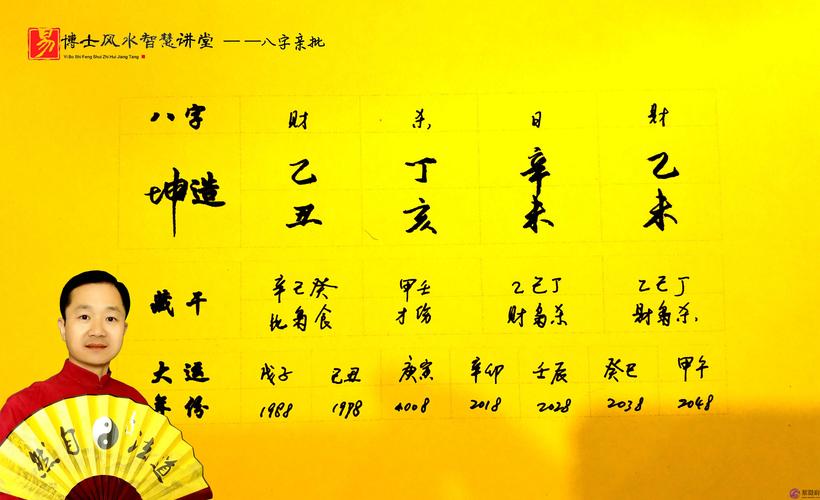 易 博士风水智慧讲堂 ——八字亲批
Yi Bo Shi Feng Shui Zhi Hui Jiang Tang
八字 财 杀 日 财
坤造 乙 丁 辛 乙
丑 亥 未 未
藏干 辛己癸 甲壬 乙己丁 乙己丁
比枭食 才伤 财枭杀 财枭杀
大运 戊子 己丑 庚寅 辛卯 壬辰 癸巳 甲午
年份 1988 1998 2008 2018 2028 2038 2048
然自法道